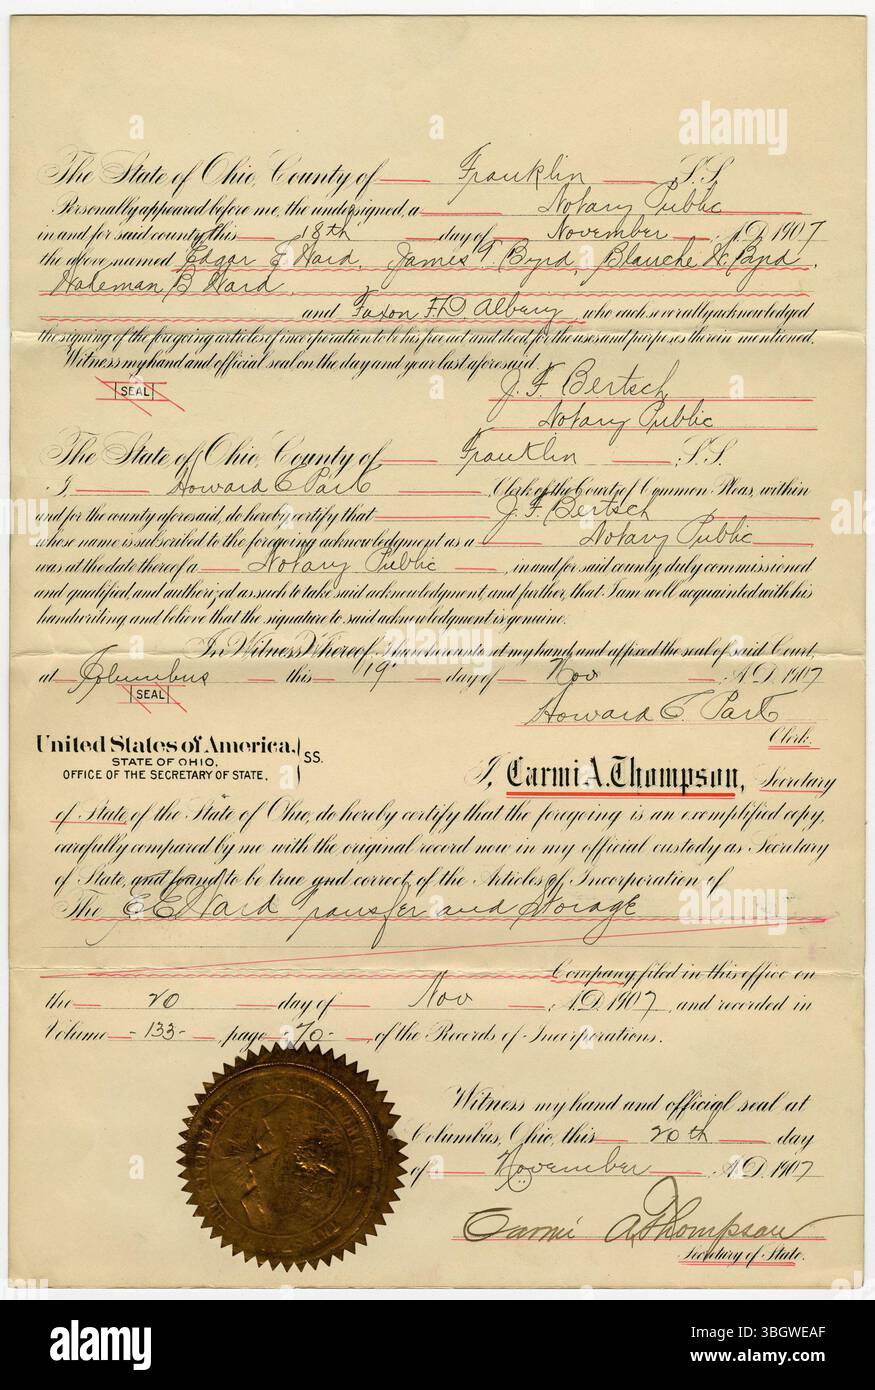 The State of Ohio, County of Franklin S.S.
Personally appeared before me, the undersigned, a Notary Public
in and for said county, this 18th day of November, A.D. 1907
the above named Edgar E Ward, James T. Byrd, Blanche W. Byrd,
Wakeman B Ward
and Faxon F.D. Albery, who each severally acknowledged
the signing of the foregoing articles of incorporation to be his free act and deed, for the uses and purposes therein mentioned.
Witness my hand and official seal on the day and year last aforesaid.
SEAL
J. F. Bertsch
Notary Public
The State of Ohio, County of Franklin S.S.
I Howard C Park, Clerk of the Court of Common Pleas, within
and for the county aforesaid, do hereby certify that J. F. Bertsch
whose name is subscribed to the foregoing acknowledgment as a Notary Public
was at the date thereof a Notary Public, in and for said county, duly commissioned
and qualified, and authorized as such to take said acknowledgment, and further, that I am well acquainted with his
handwriting, and believe that the signature to said acknowledgment is genuine.
In Witness Whereof, I have hereunto set my hand, and affixed the seal of said Court,
at Columbus this 19" day of Nov, A.D. 1907
SEAL
Howard C. Park
Clerk.
United States of America, SS.
STATE OF OHIO,
OFFICE OF THE SECRETARY OF STATE,
I, Carmi A. Thompson, Secretary
of State, of the State of Ohio, do hereby certify that the foregoing is an exemplified copy,
carefully compared by me with the original record now in my official custody as Secretary
of State, and found to be true and correct, of the Articles of Incorporation of
The E E Ward Transfer and Storage
Company, filed in this office on
the 20 day of Nov, A.D. 1907, and recorded in
Volume -133-, page -70-, of the Records of Incorporations.
Witness my hand and official seal at
Columbus, Ohio, this 20th day
of November, A.D. 1907
Carmi A. Thompson
Secretary of State.
alamy
Image ID: 3BGWEAF
www.alamy.com